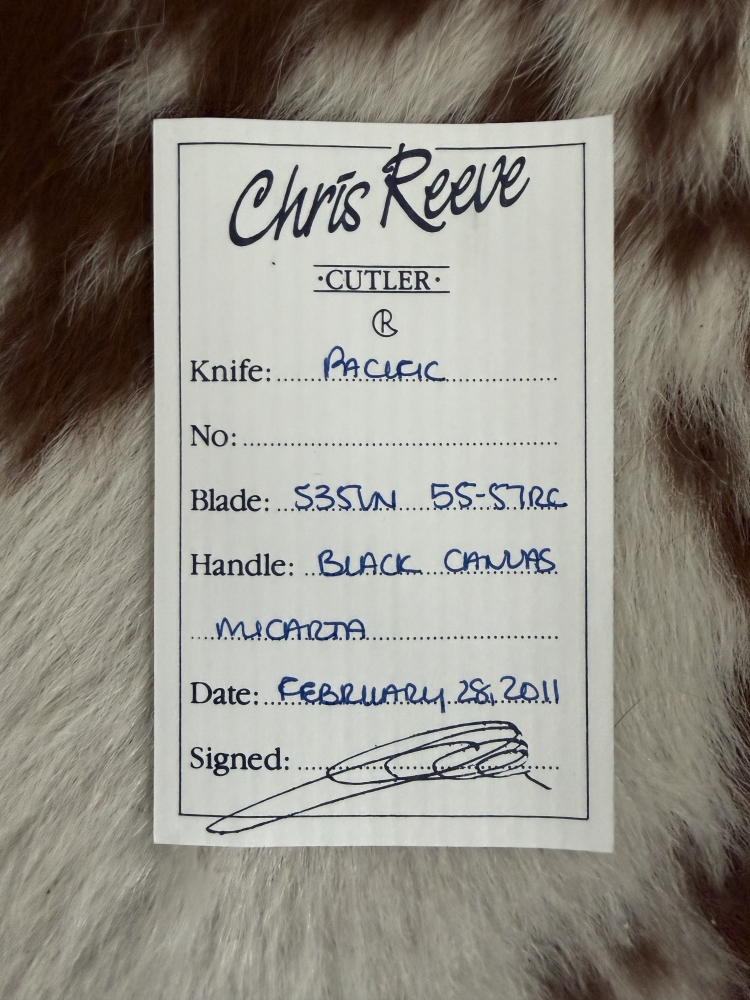 Chris Reeve
·CUTLER·
R
Knife: PACIFIC
No:
Blade: S35VN 55-57RC
Handle: BLACK CANVAS
MICARTA
Date: FEBRUARY 28, 2011
Signed: